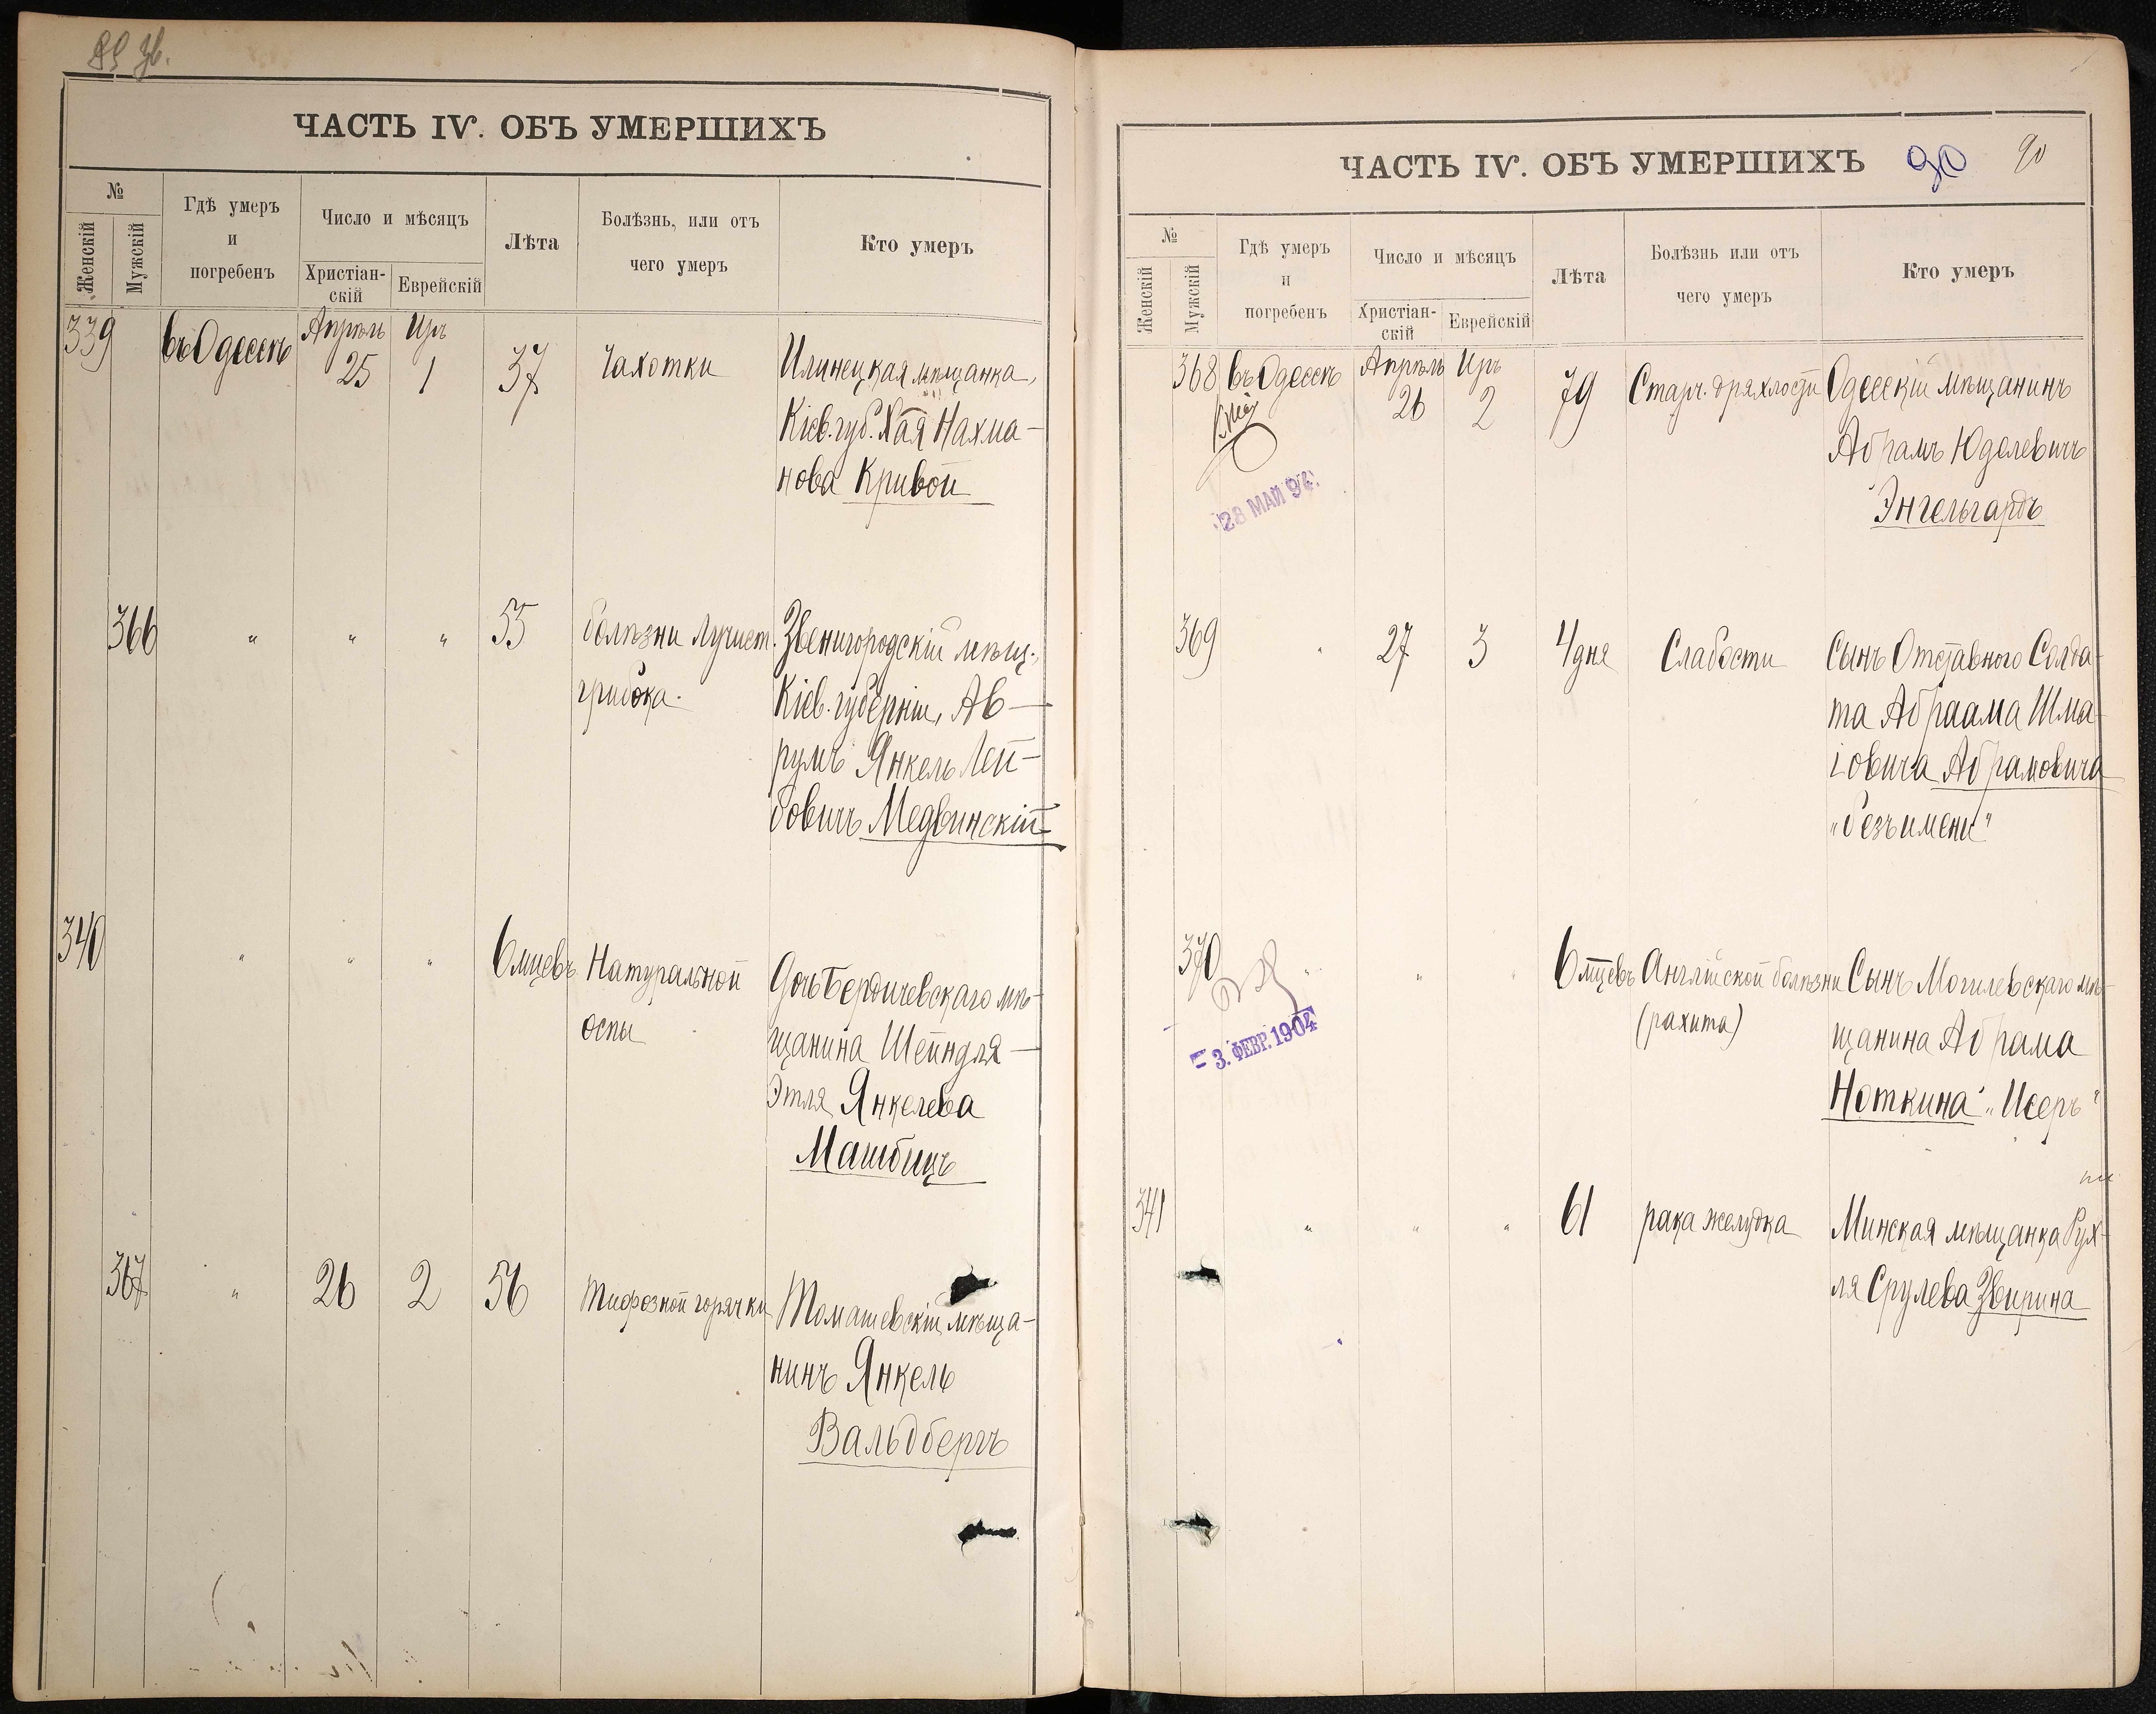 ЧАСТЬ IV. ОБЪ УМЕРШИХЪ
№
Женскій
Мужскій
Гдѣ умеръ
и
погребенъ
Число и мѣсяцъ
Христіан-
скій
Еврейскій
Лѣта
Болѣзнь, или отъ
чего умеръ
Кто умеръ
339
въ Одессѣ
Апрѣль
25
Иръ
1
37
Чахотки
Илинецкая мѣщанка,
Кіев. губ. Хая Нахма-
нова Кривой
366
" " "
55
болѣзни лучист.
грибока.
Звенигородскій мѣщ.,
Кіев. губерніи, Ав-
румъ Янкель Лей-
бовичъ Медвинскій
340
" " "
6 мцевъ
Натуральной
оспы
Дочь Бердичевскаго мѣ-
щанина Шейндля-
Этля Янкелева
Машбицъ
367
"
26
2
56
Тифозной горячки
Томашевскій мѣща-
нинъ Янкель
Вальдбергъ
ЧАСТЬ IV. ОБЪ УМЕРШИХЪ 90 90
№
Женскій
Мужскій
Гдѣ умеръ
и
погребенъ
Число и мѣсяцъ
Христіан-
скій
Еврейскій
Лѣта
Болѣзнь или отъ
чего умеръ
Кто умеръ
368
въ Одессѣ
28 МАЙ
Апрѣль
26
Иръ
2
79
Старч. дряхлости
Одесскій мѣщанинъ
Абрамъ Юделевичъ
Энгельгардъ
369
"
27
3
4 дня
Слабости
Сынъ Отставного Солда-
та Абраама Шма-
іовича Абрамовича
"безъ имени"
370
3. ФЕВР. 1904
" " "
6 мцевъ
Англійской болѣзни
(рахита)
Сынъ Могилевскаго мѣ-
щанина Абрама
Ноткина "Исеръ"
341
" " "
61
рака желудка
Минская мѣщанка Рух-
ля Срулева Звирина